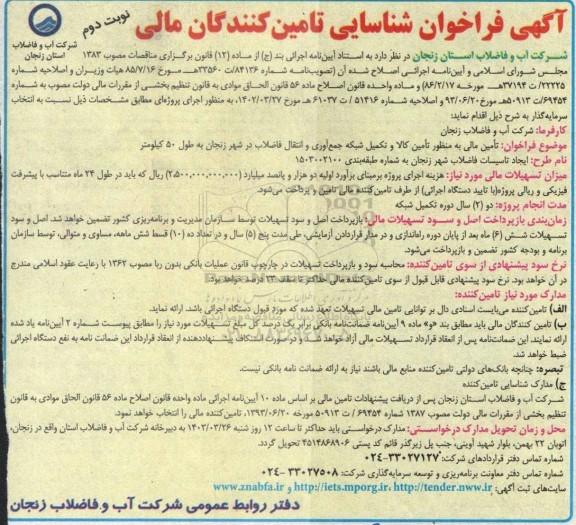 آگهی فراخوان شناسایی تامین‌کنندگان مالی
نوبت دوم
شرکت آب و فاضلاب
استان زنجان
شرکت آب و فاضلاب استان زنجان در نظر دارد به استناد آیین‌نامه اجرائی بند (ج) از ماده (۱۲) قانون برگزاری مناقصات مصوب ۱۳۸۳
مجلس شورای اسلامی و آیین‌نامه اجرائی اصلاح شده آن (تصویب‌نامه شماره ۸۴۱۳۶/ت ۳۳۵۶۰هـ مورخ ۸۵/۷/۱۶ هیات وزیران و اصلاحیه شماره
۲۲۲۲۵/ت ۳۷۱۹۴هـ مورخه ۸۶/۲/۱۷) و ماده واحده قانون اصلاح ماده ۵۶ قانون الحاق موادی به قانون تنظیم بخشی از مقررات مالی دولت مصوب به شماره
۶۹۴۵۴/ت ۵۰۹۱۳هـ مورخ ۹۳/۰۶/۲۰ و اصلاحیه شماره ۵۱۴۱۶ / ت ۶۱۰۳۷ هـ مورخ ۱۴۰۲/۰۳/۲۷، به منظور اجرای پروژه‌ای مطابق مشخصات ذیل نسبت به انتخاب
سرمایه‌گذار به شرح ذیل اقدام نماید:
کارفرما: شرکت آب و فاضلاب زنجان
موضوع فراخوان: تأمین مالی به منظور تأمین کالا و تکمیل شبکه جمع‌آوری و انتقال فاضلاب در شهر زنجان به طول ۵۰ کیلومتر
نام طرح: ایجاد تاسیسات فاضلاب شهر زنجان به شماره طبقه‌بندی ۱۵۰۳۰۰۲۱۰۰
میزان تسهیلات مالی مورد نیاز: هزینه اجرای پروژه برمبنای برآورد اولیه دو هزار و پانصد میلیارد (۲،۵۰۰،۰۰۰،۰۰۰،۰۰۰) ریال که باید در طول ۲۴ ماه متناسب با پیشرفت
فیزیکی و ریالی پروژه(با تایید دستگاه اجرائی) از طرف تامین‌کننده مالی تامین و پرداخت می‌شود.
مدت انجام پروژه: دو (۲) سال دوره تکمیل شبکه
زمان‌بندی بازپرداخت اصل و سود تسهیلات مالی: بازپرداخت اصل و سود تسهیلات توسط سازمان مدیریت و برنامه‌ریزی کشور تضمین خواهد شد. اصل و سود
تسهیلات شش (۶) ماه بعد از پایان دوره راه‌اندازی و در مدار قراردادن آزمایشی، طی مدت پنج (۵) سال و در تعداد ده (۱۰) قسط شش ماهه، مساوی و متوالی، توسط سازمان
برنامه و بودجه کشور تضمین و بازپرداخت می‌شود.
نرخ سود پیشنهادی از سوی تامین‌کننده: محاسبه سود و بازپرداخت تسهیلات در چارچوب قانون عملیات بانکی بدون ربا مصوب ۱۳۶۲ با رعایت عقود اسلامی مندرج
در آن خواهد بود. نرخ سود پیشنهادی قابل قبول از سوی تامین‌کننده مالی حداکثر تا سقف ۲۳ درصد خواهد بود.
مدارک مورد نیاز تامین‌کننده:
الف) تامین کننده می‌بایست اسنادی دال بر توانایی تامین مالی تسهیلات تعهد شده که مورد قبول دستگاه اجرائی باشد. ارائه نماید.
ب) تامین کنندگان مالی باید مطابق بند «و» ماده ۹ آیین‌نامه ضمانت‌نامه بانکی برابر یک درصد کل مبلغ تسهیلات مورد نیاز را مطابق پیوست شماره ۲ آیین‌نامه یاد شده
ارائه نمایند. این ضمانت‌نامه پس از انعقاد قرارداد تسهیلات مالی آزاد خواهد شد و در صورت استنکاف پیشنهاددهنده از انعقاد قرارداد این ضمانت نامه به نفع دستگاه اجرائی
ضبط خواهد شد.
تبصره: چنانچه بانک‌های دولتی تامین‌کننده منابع مالی باشند نیاز به ارائه ضمانت نامه بانکی نیست.
ج) مدارک شناسایی تامین‌کننده
شرکت آب و فاضلاب استان زنجان پس از دریافت پیشنهادات تامین مالی بر اساس ماده ۱۰ آیین‌نامه اجرائی ماده واحده قانون اصلاح ماده ۵۶ قانون الحاق موادی به قانون
تنظیم بخشی از مقررات مالی دولت مصوب ۱۳۸۷ شماره ۶۹۴۵۴ / ت ۵۰۹۱۳ مورخ ۱۳۹۳/۰۶/۲۰، تامین‌کننده مالی را انتخاب خواهد نمود.
محل و زمان تحویل مدارک درخواستی: مدارک درخواستی باید حداکثر تا ساعت ۱۲ روز شنبه ۱۴۰۲/۰۳/۲۶ به دبیرخانه شرکت آب و فاضلاب استان واقع در زنجان،
اتوبان ۲۲ بهمن، بلوار شهید آوینی، جنب پل زیرگذر قائم کد پستی ۴۵۱۴۸۶۸۹۰۶ تحویل گردد.
شماره تماس دفتر قراردادهای شرکت: ۳۳۰۲۷۱۲۷-۰۲۴
شماره تماس دفتر معاونت برنامه‌ریزی و توسعه سرمایه‌گذاری شرکت: ۳۳۰۲۷۵۰۸ -۰۲۴
سایت‌های ثبت آگهی: http://iets.mporg.ir، http://tender.nww.ir و www.znabfa.ir
دفتر روابط عمومی شرکت آب و فاضلاب زنجان